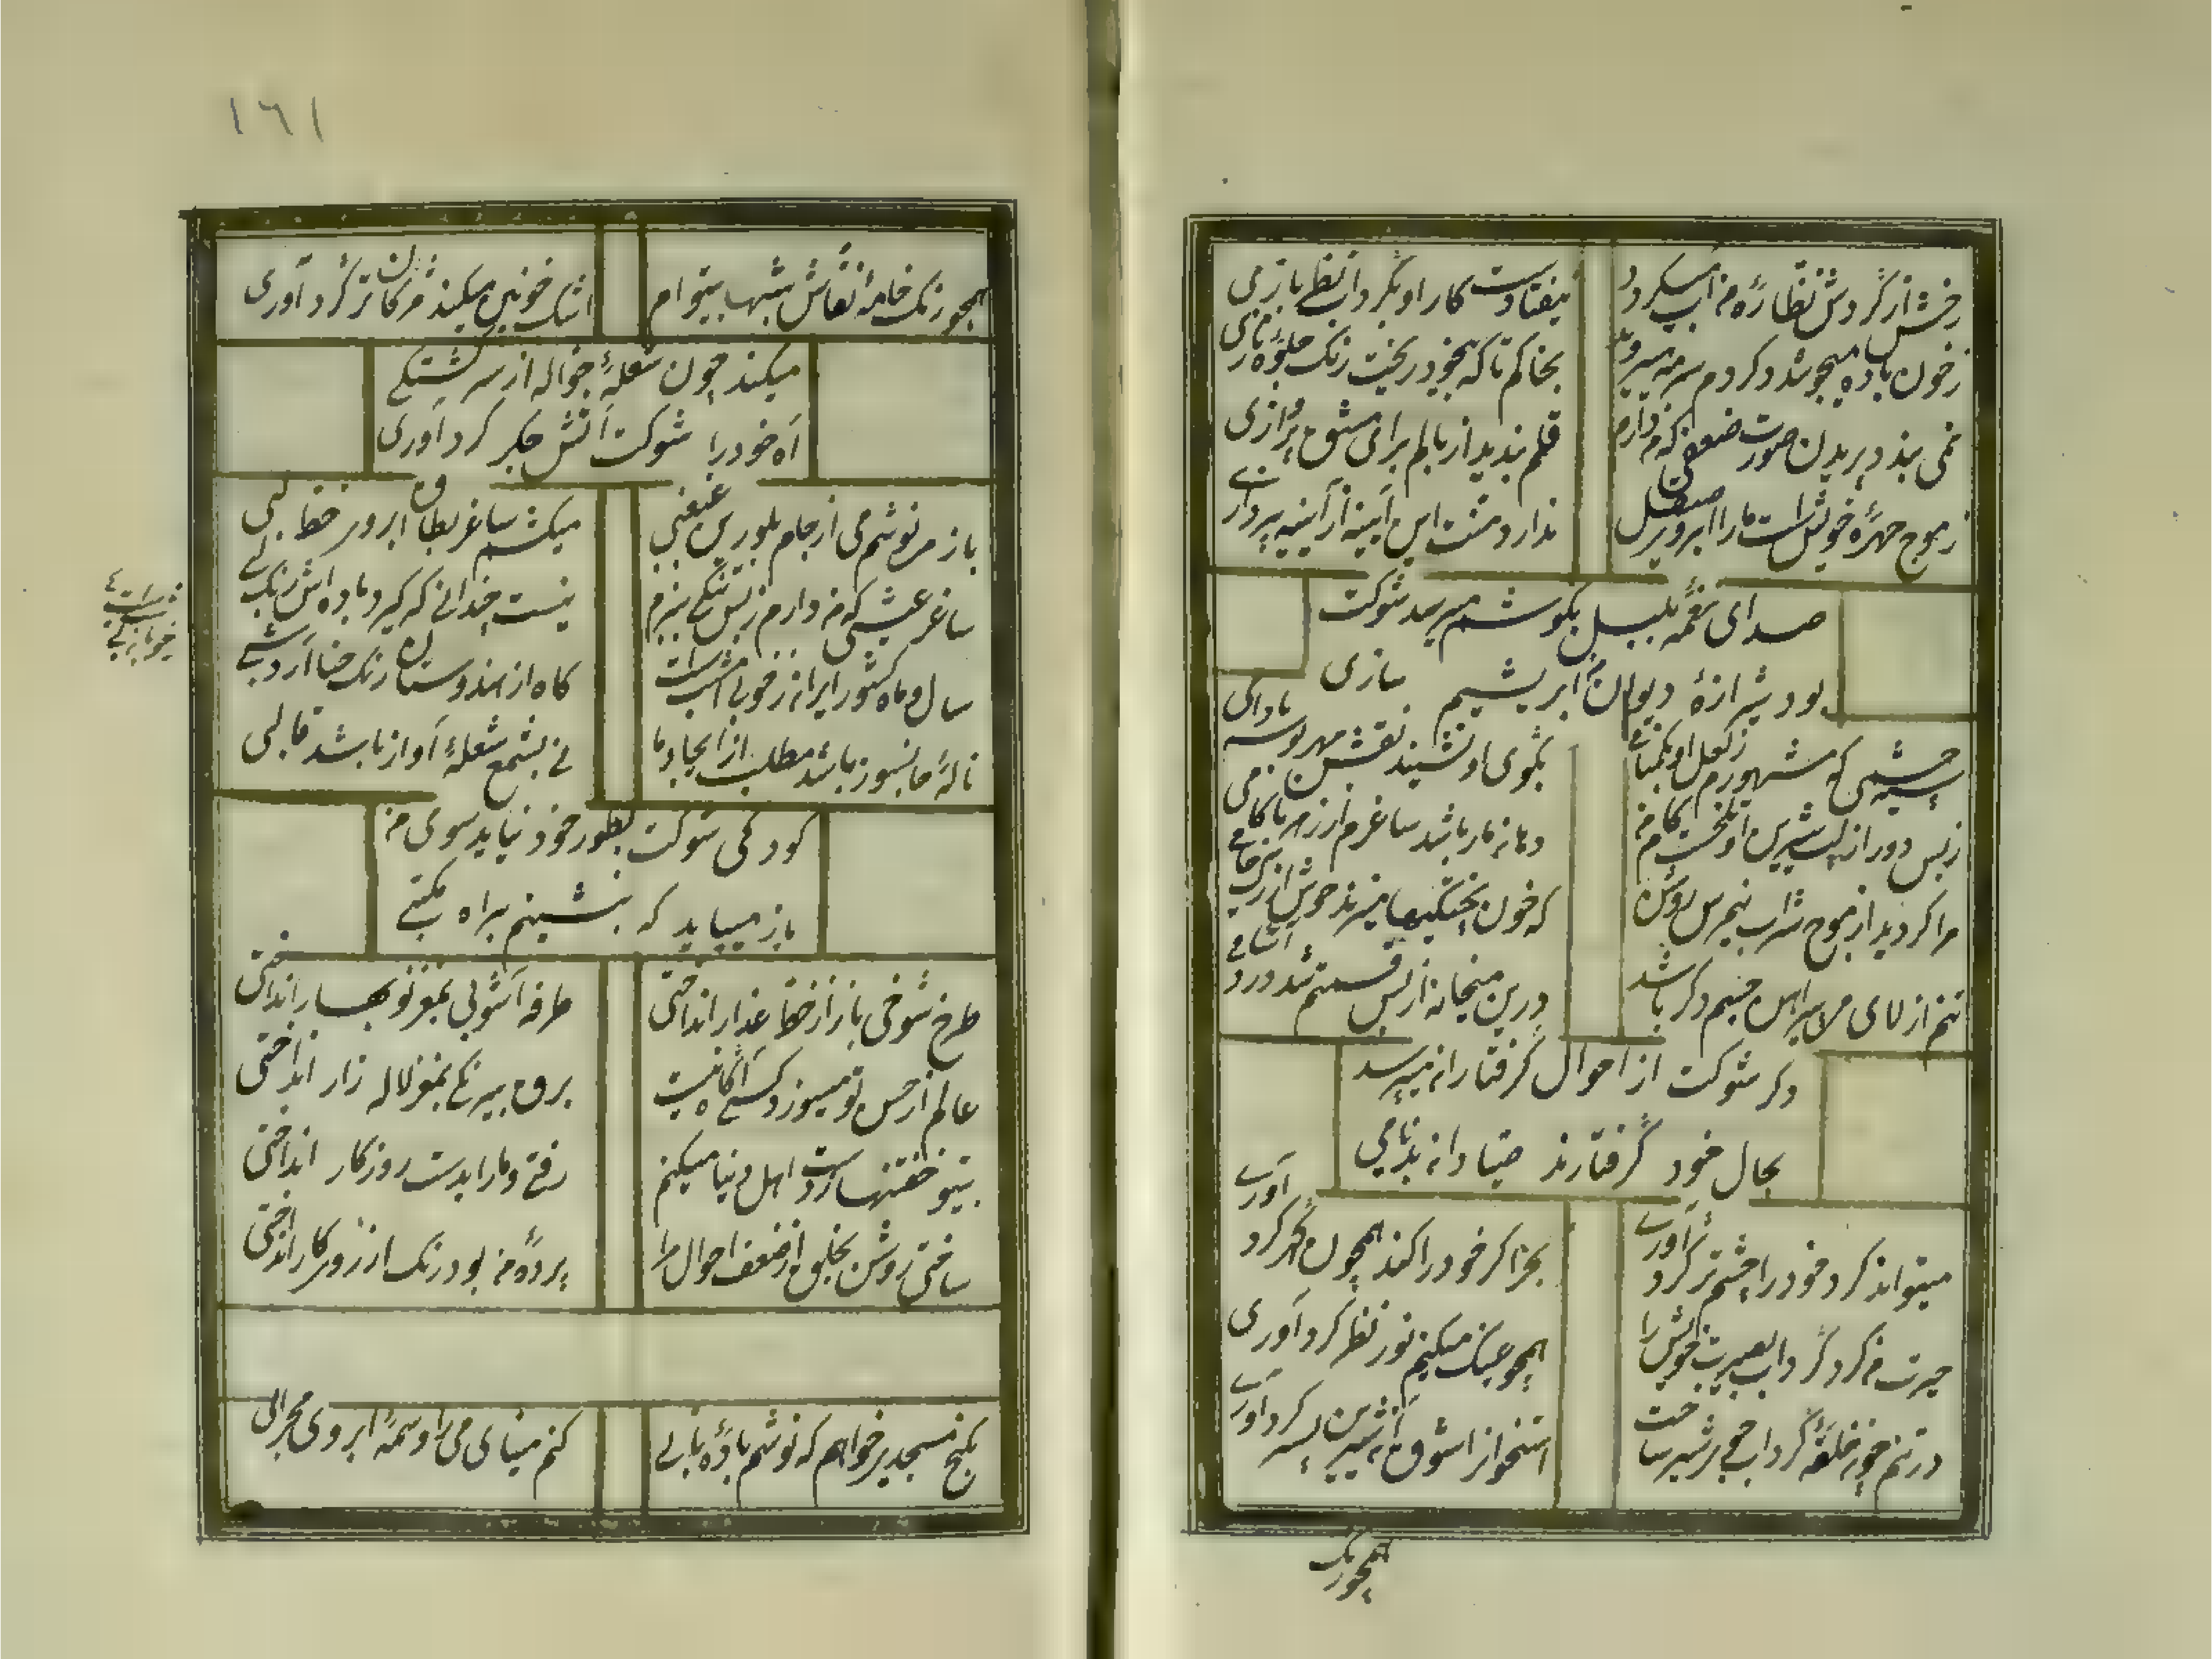 رخش از گردش نظاره من آب میگردد
بیفتادست کار او بگرداب نظر بازی
ز خون باده میجوشد و کردم سرمه میروید
بخاکم تا که بیخود ریخت رنگ جلوه نازی
نمی بندد پریدن صورت ضعفی که من دارم
قلم بندید از بالم برای مشق پروازی
ز موج چهره خویش است ما را ابروی صیقل
ندارد منت این آیینه از آیینه پردازی
صدای نغمه بلبل بگوشم میرسد شوکت
بود شیرازه دیوان من ابریشم سازی
سیه چشمی که مشهورم ز لعل او بگمنامی
بگوی او نشیند نقش من مهر بوسه بادامی
ز بس دور از لب شیرین او تلخست کام من
دهان مار باشد ساغرم از زهر ناکامی
مرا گردید از موج شراب نیمرس روشن
که خون پختگیها میزند جوش از رگ خامی
تنم از لای می پیراهن جسم دگر باشد
درین میخانه از بس قسمتم شد درد آشامی
دگر شوکت از احوال گرفتاران میپرسد
بحال خود گرفتارند صیادان بدنامی
میتواند کرد خود را چشم تر گردآوری
بحر اگر خود را کند همچون گهر گردآوری
حیرت من کرد گرداب بصیرت خویش را
همچو عینک میکنم نور نظر گردآوری
در تنم چون حلقه گرداب جوی شیر ساخت
استخوان از شوق آن شیرین پسر گردآوری
همچو رنگ
۱۶۱
همچو رنگ خامه نقاش شبها بیتوام
اشک خونین میکند مژگان تر گردآوری
میکند چون شعله جواله از سرگشتگی
آه خود را شوکت آتش جگر گردآوری
باز می نوشم می از جام بلورین غبغبی
میکشم ساغر بطاق ابروی خط لبی
ساغر عیشی که من دارم ز بس تنگی بزم
نیست چندانی که گیرد باده اش رنگ لبی
سال و ماه کشور ایران ز خوبی امشب است
گاه از هندوستان رنگ حنا آرد شبی
ناله جانسوز باشد مطلب از ایجاد ما
نی بشمع شعله آواز باشد قالبی
کودکی شوکت بطور خود نیاید سوی من
باز میباید که بنشینم براه مکتبی
طرح شوخی باز از خط عذار انداختی
طرفه آشوبی بمغز نوبهار انداختی
عالم از حسن تو میسوزد کسی آگاه نیست
برق بیرنگی بمغز لاله زار انداختی
بیتو خفتنها ز دست اهل دنیا میکنم
رفتی و ما را بدست روزگار انداختی
ساختی روشن بخلق از ضعف احوال مرا
پرده من بود رنگ از روی کار انداختی
بکنج مسجدی خواهم که نوشم باده نابی
کنم مینای می را وسمه ابروی محرابی